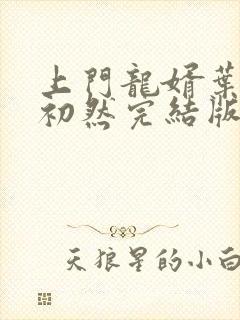 上門龍婿葉
初然完結版
天狼星的小白